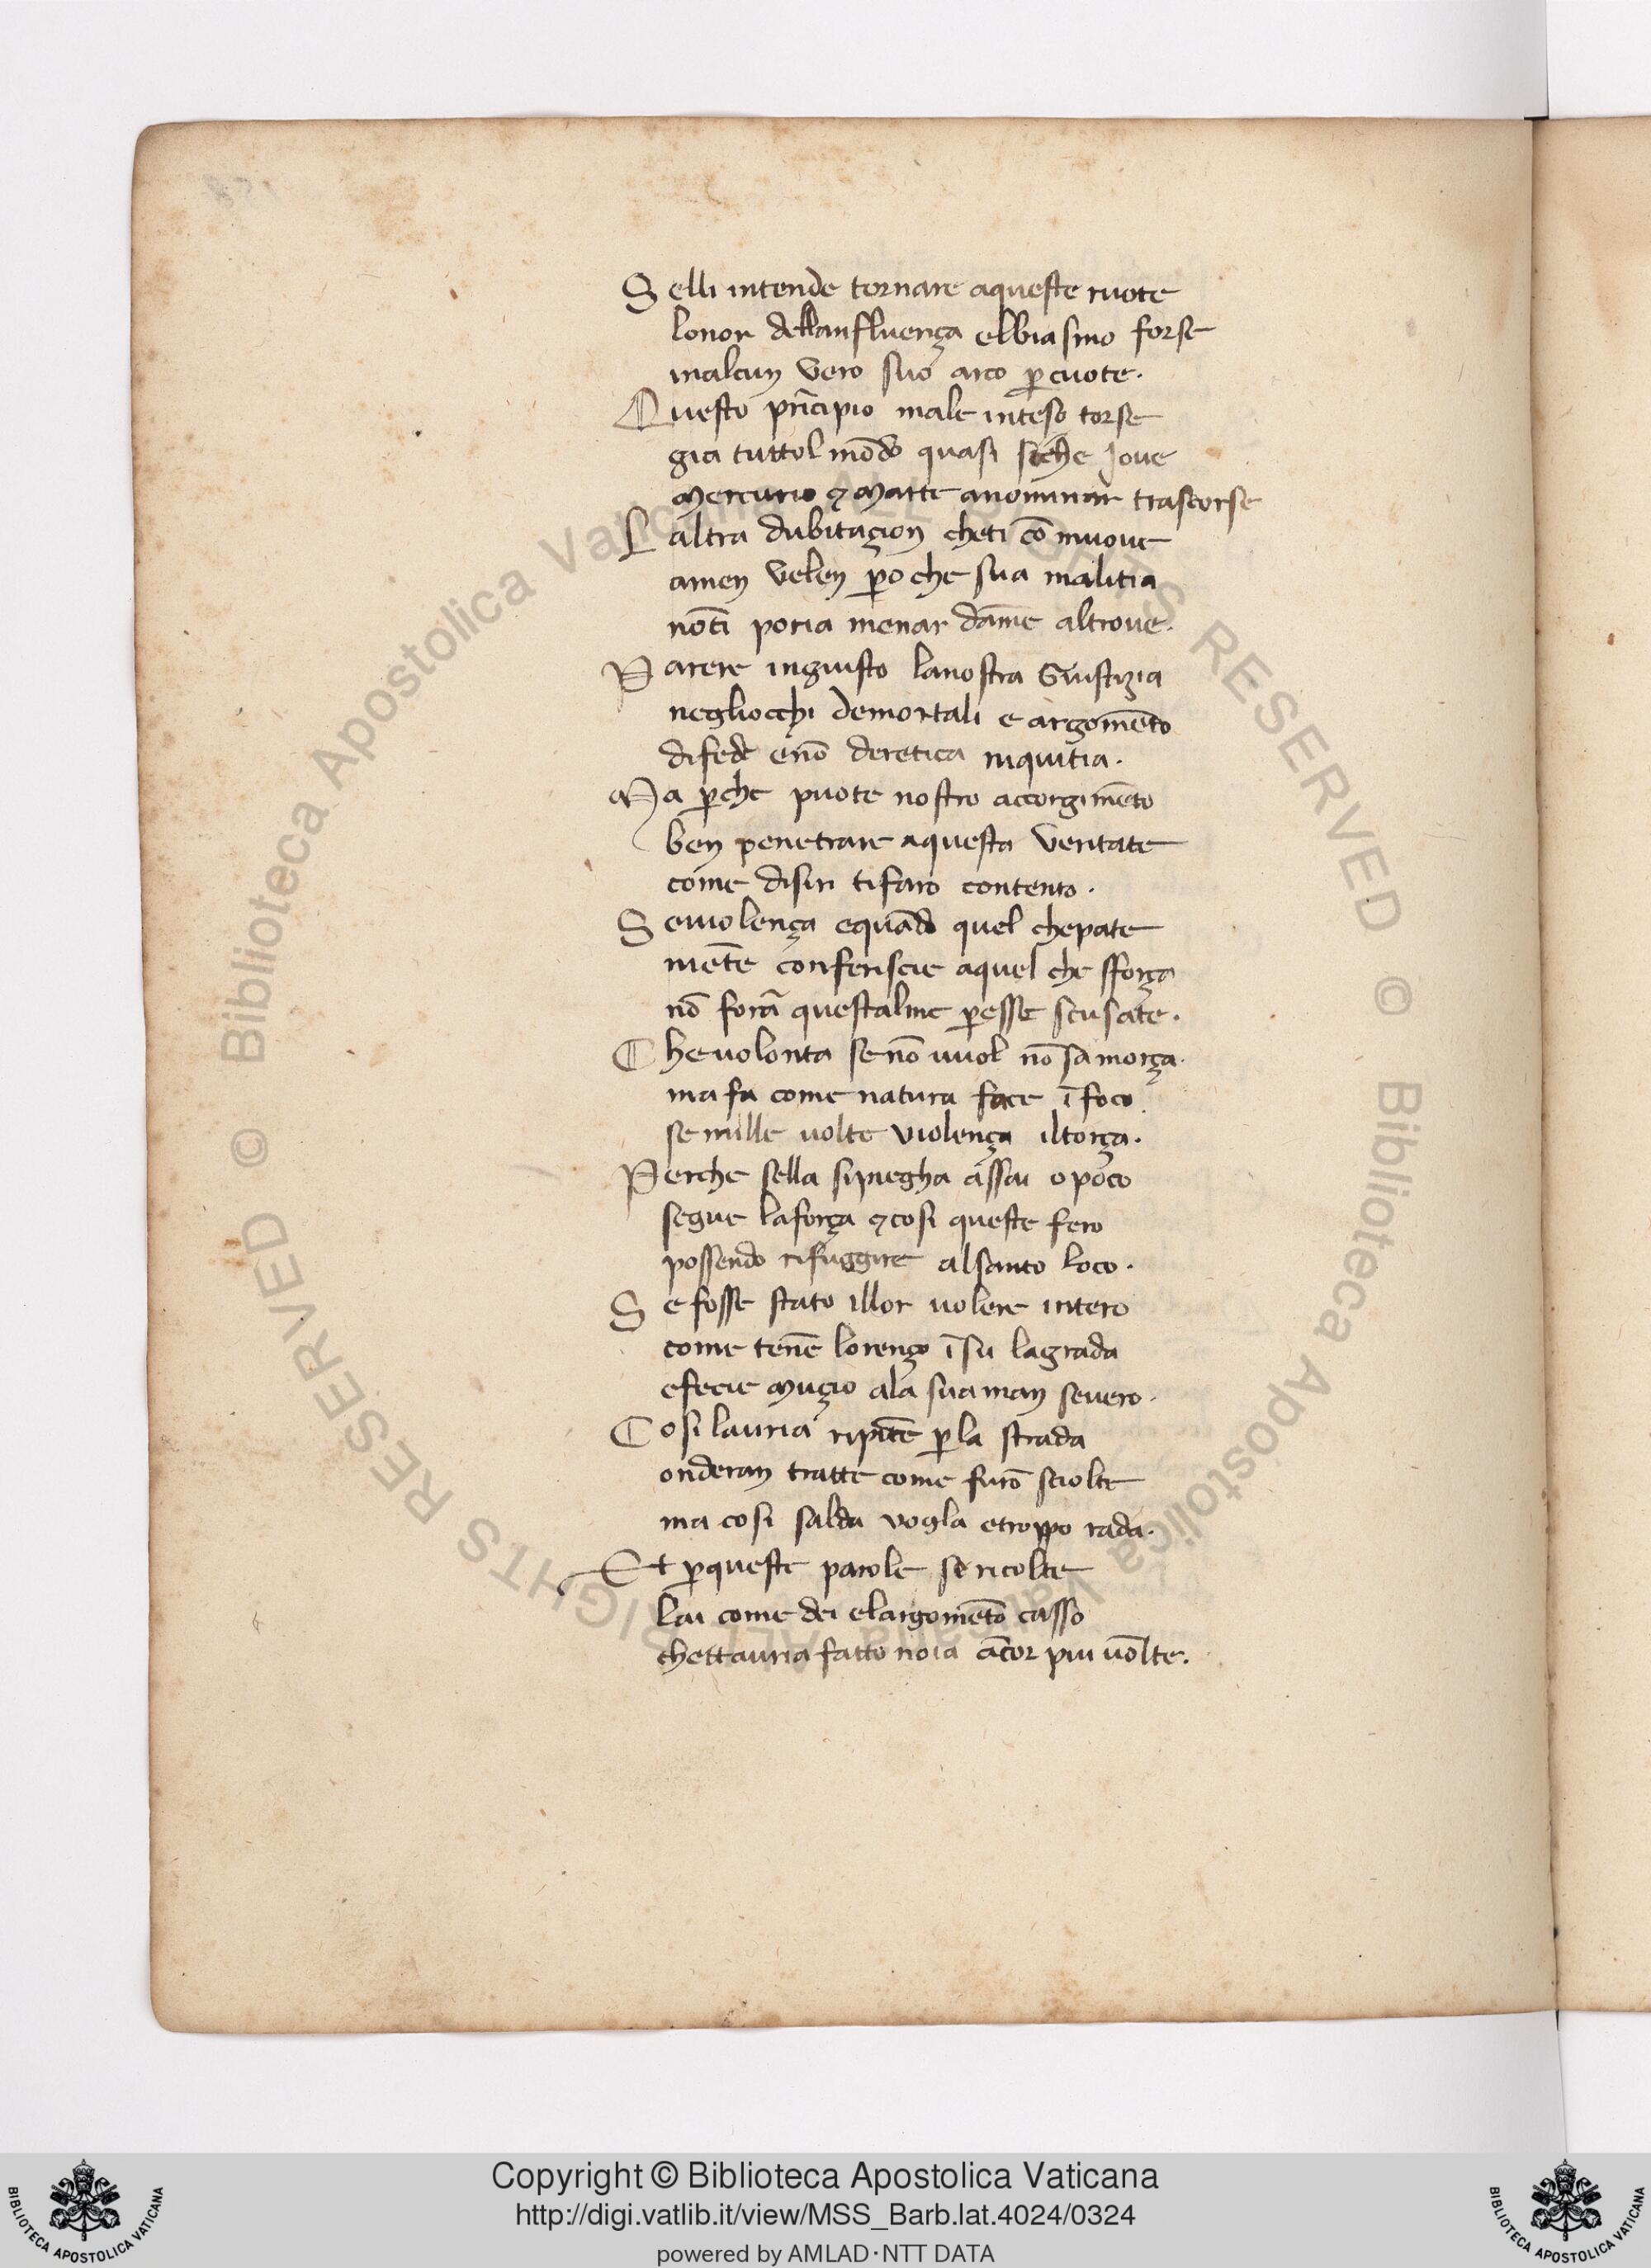 S elli intende tornare aqueste ruote
lonor dellanfluença elbiasmo forse
inalcun vero suo arco ꝑcuote.
Questo prīcipio male inteso torse
gia tuttol mōdo quasi siche Joue
Mercurio ⁊ Marte anominar trascorse
L altra dubitaçion cheti cō muoue
amen velen ꝑo che sua malitia
nōti poria menar dāme altroue.
P arere ingiusto lanostra Giustizia
negliocchi demortali e argomēto
difede enō deretica niquitia.
Ma ꝑche puote nostro accorgimēto
ben penetrare aquesta veritate
come disiri tifaro contento.
S euiolença equādo quel chepate
niēte conferiscie aquel che sforça
nō forā questalme ꝑesse scusate.
C heuolonta senō uuol nō samorça.
ma fa come natura face ī foco
se mille uolte violença iltorça.
Perche sella sipiegha assai o poco
segue laforça ⁊ cosi queste fero
possendo rifuggire alsanto loco.
S e fosse stato illor uolere intero
come tēne lorenço ī su lagrada
efecie Muçio ala suaman seuero.
C osi lauria ripīte ꝑla strada
onderan tratte come furō sciolte
ma cosi salda vogla etroppo rada.
Et ꝑqueste parole se ricolte
lai come dei elargomēto casso
chettauria fatto noia ācor piu uolte.
Biblioteca Apostolica Vaticana ALL RIGHTS RESERVED ©
Biblioteca Apostolica Vaticana ALL RIGHTS RESERVED ©
Copyright © Biblioteca Apostolica Vaticana
http://digi.vatlib.it/view/MSS_Barb.lat.4024/0324
powered by AMLAD·NTT DATA
BIBLIOTECA APOSTOLICA VATICANA
BIBLIOTECA APOSTOLICA VATICANA